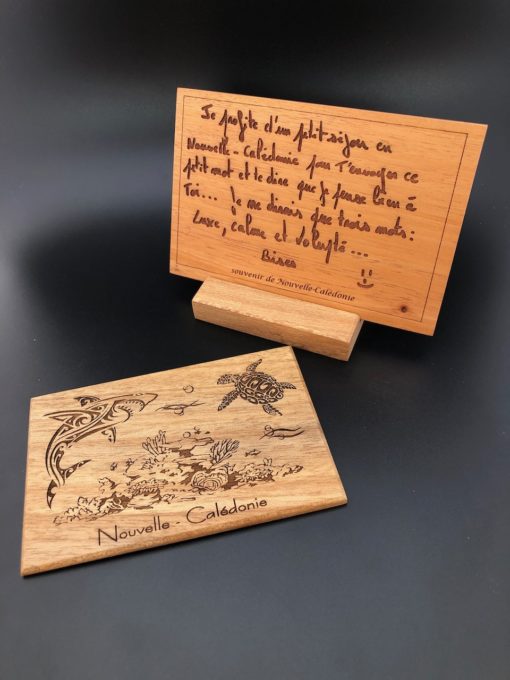 Je profite d'un petit séjour en
Nouvelle-Calédonie pour T'envoyer ce
petit mot et te dire que je pense bien à
Toi... Je me disais que trois mots:
Luxe, calme et volupté...
Bises
souvenir de Nouvelle-Calédonie
Nouvelle - Calédonie